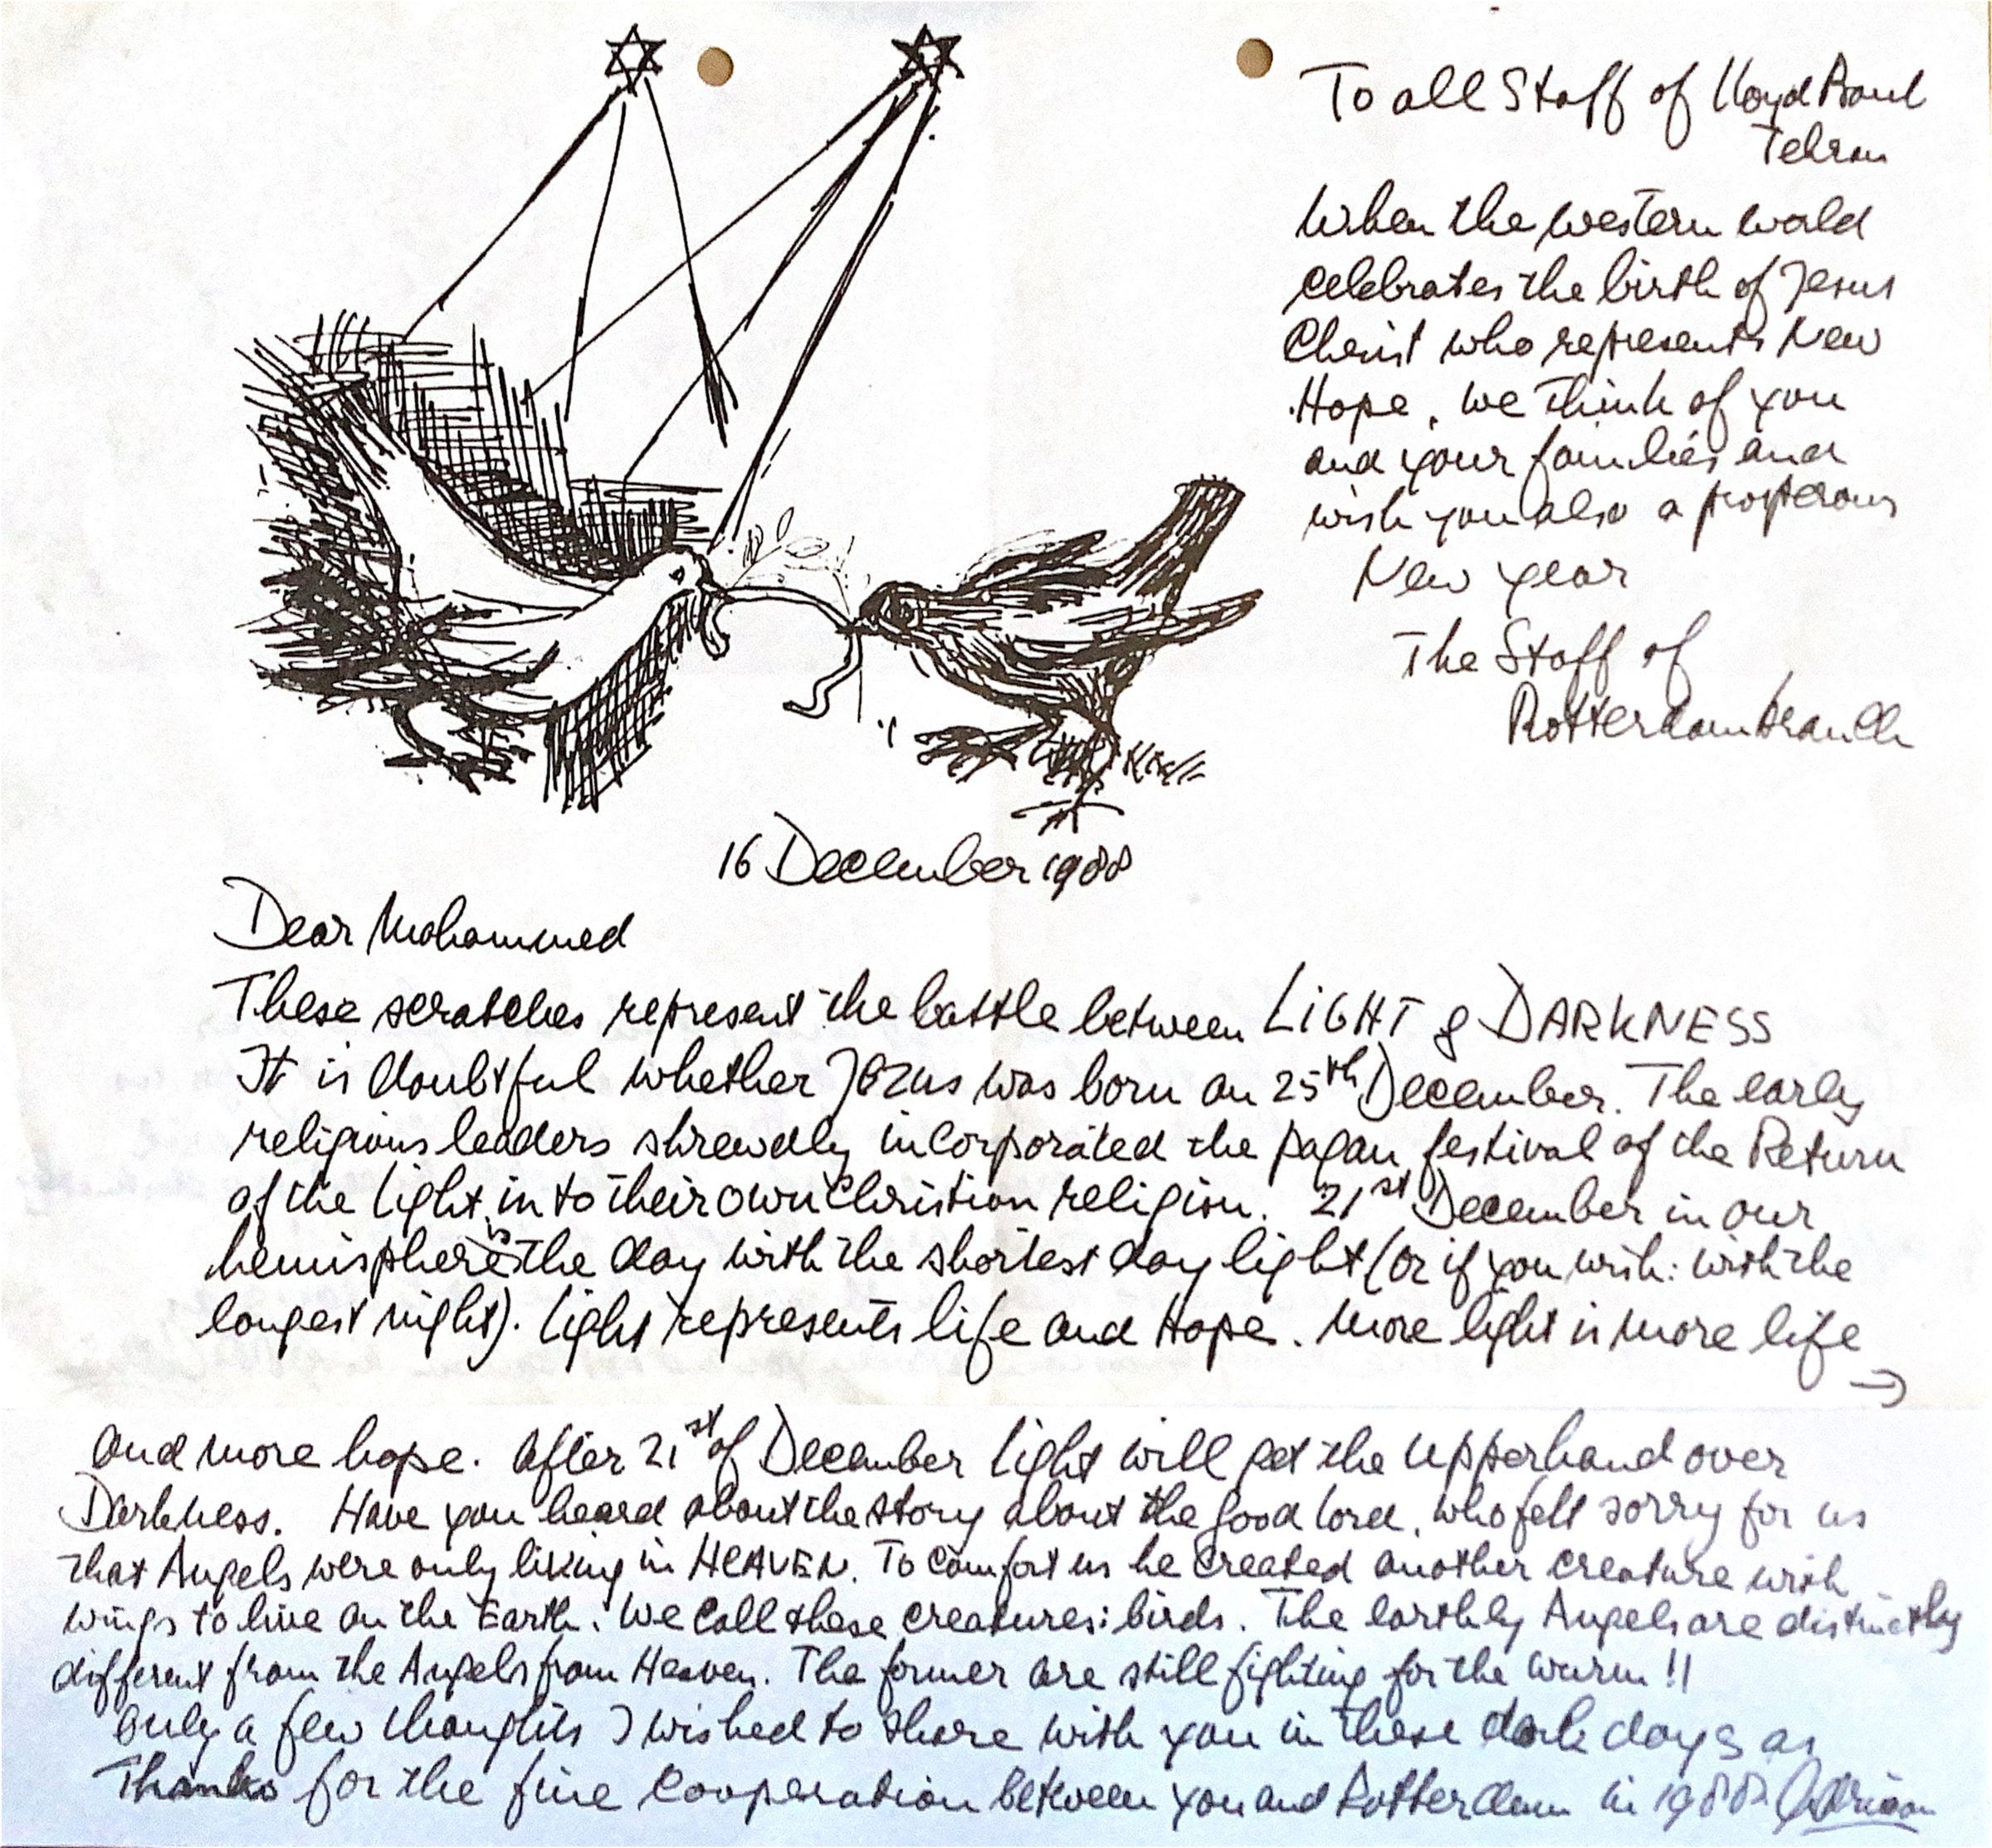 To all Staff of Lloyd
Tehran
When the western world
celebrates the birth of Jesus
Christ who represents New
Hope, we think of you
and your families and
wish you also a prosperous
New year
The Staff of
Rotterdam branch
16 December 1988
Dear Mohammed
These scratches represent the battle between LiGHT & DARKNESS
It is doubtful whether Jezus was born on 25th December. The early
religious leaders shrewdly incorporated the pagan festival of the Return
of the light, in to their own Christian religion. 21st December in our
hemisphere is the day with the shortest day light (or if you wish: with the
longest night). Light represents life and Hope. More light is more life
→
and more hope. After 21st of December light will get the upperhand over
Darkness. Have you heard about the story about the good lord, who felt sorry for us
that Angels were only living in HEAVEN. To comfort us he created another creature with
wings to live on the Earth. We call these creatures: birds. The earthly Angels are distinctly
different from the Angels from Heaven. The former are still fighting for the wurm!!
Only a few thoughts I wished to share with you in these dark days as
Thanks for the fine cooperation between you and Rotterdam in 1988. Adriaan